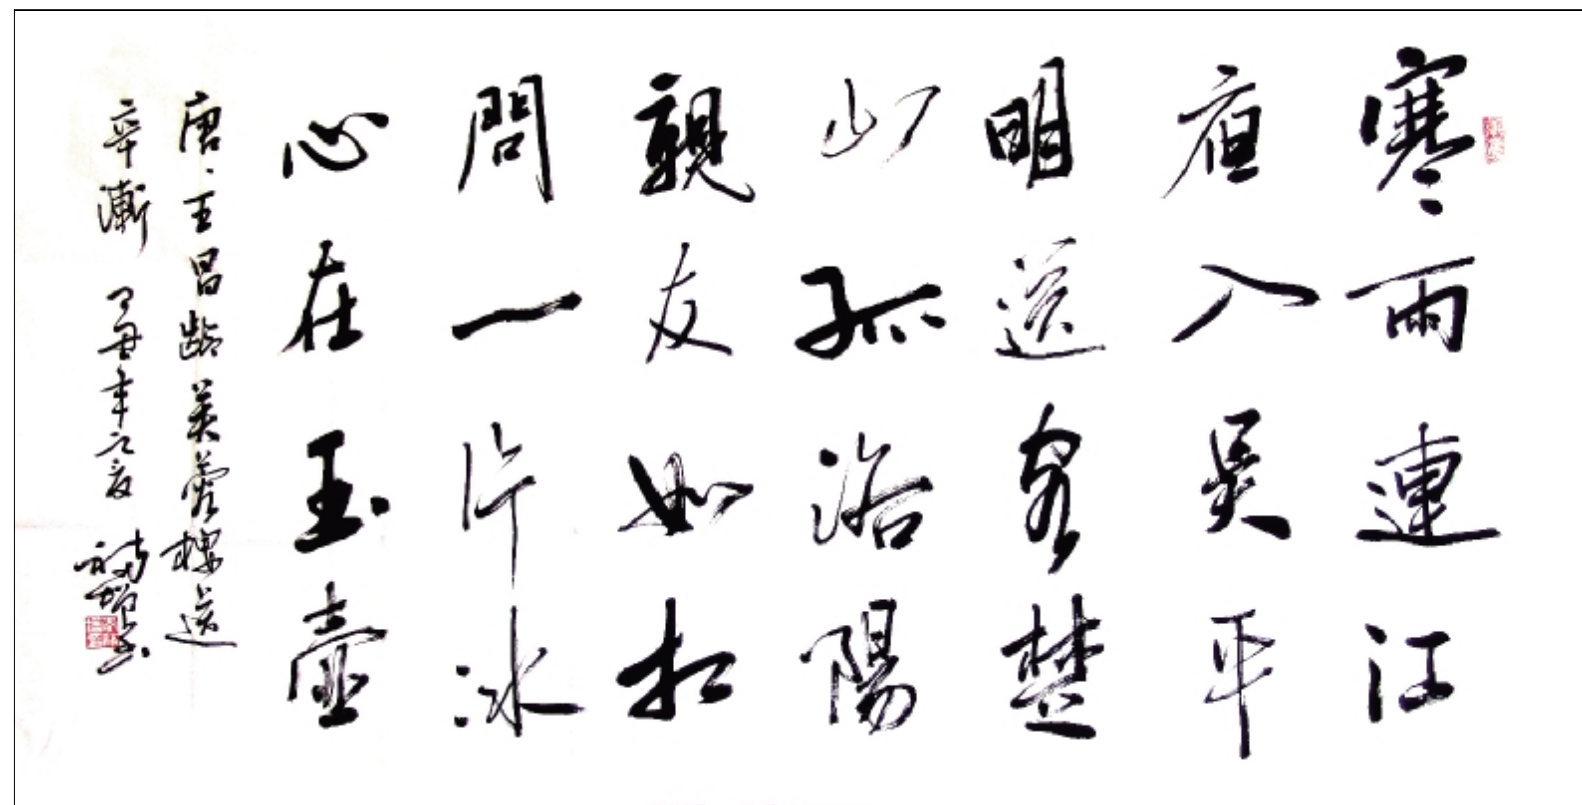 寒雨連江
夜入吴平
明送客楚
山孤洛陽
親友如相
問一片冰
心在玉壺
唐、王昌龄芙蓉楼送
辛漸 丁丑年之夏